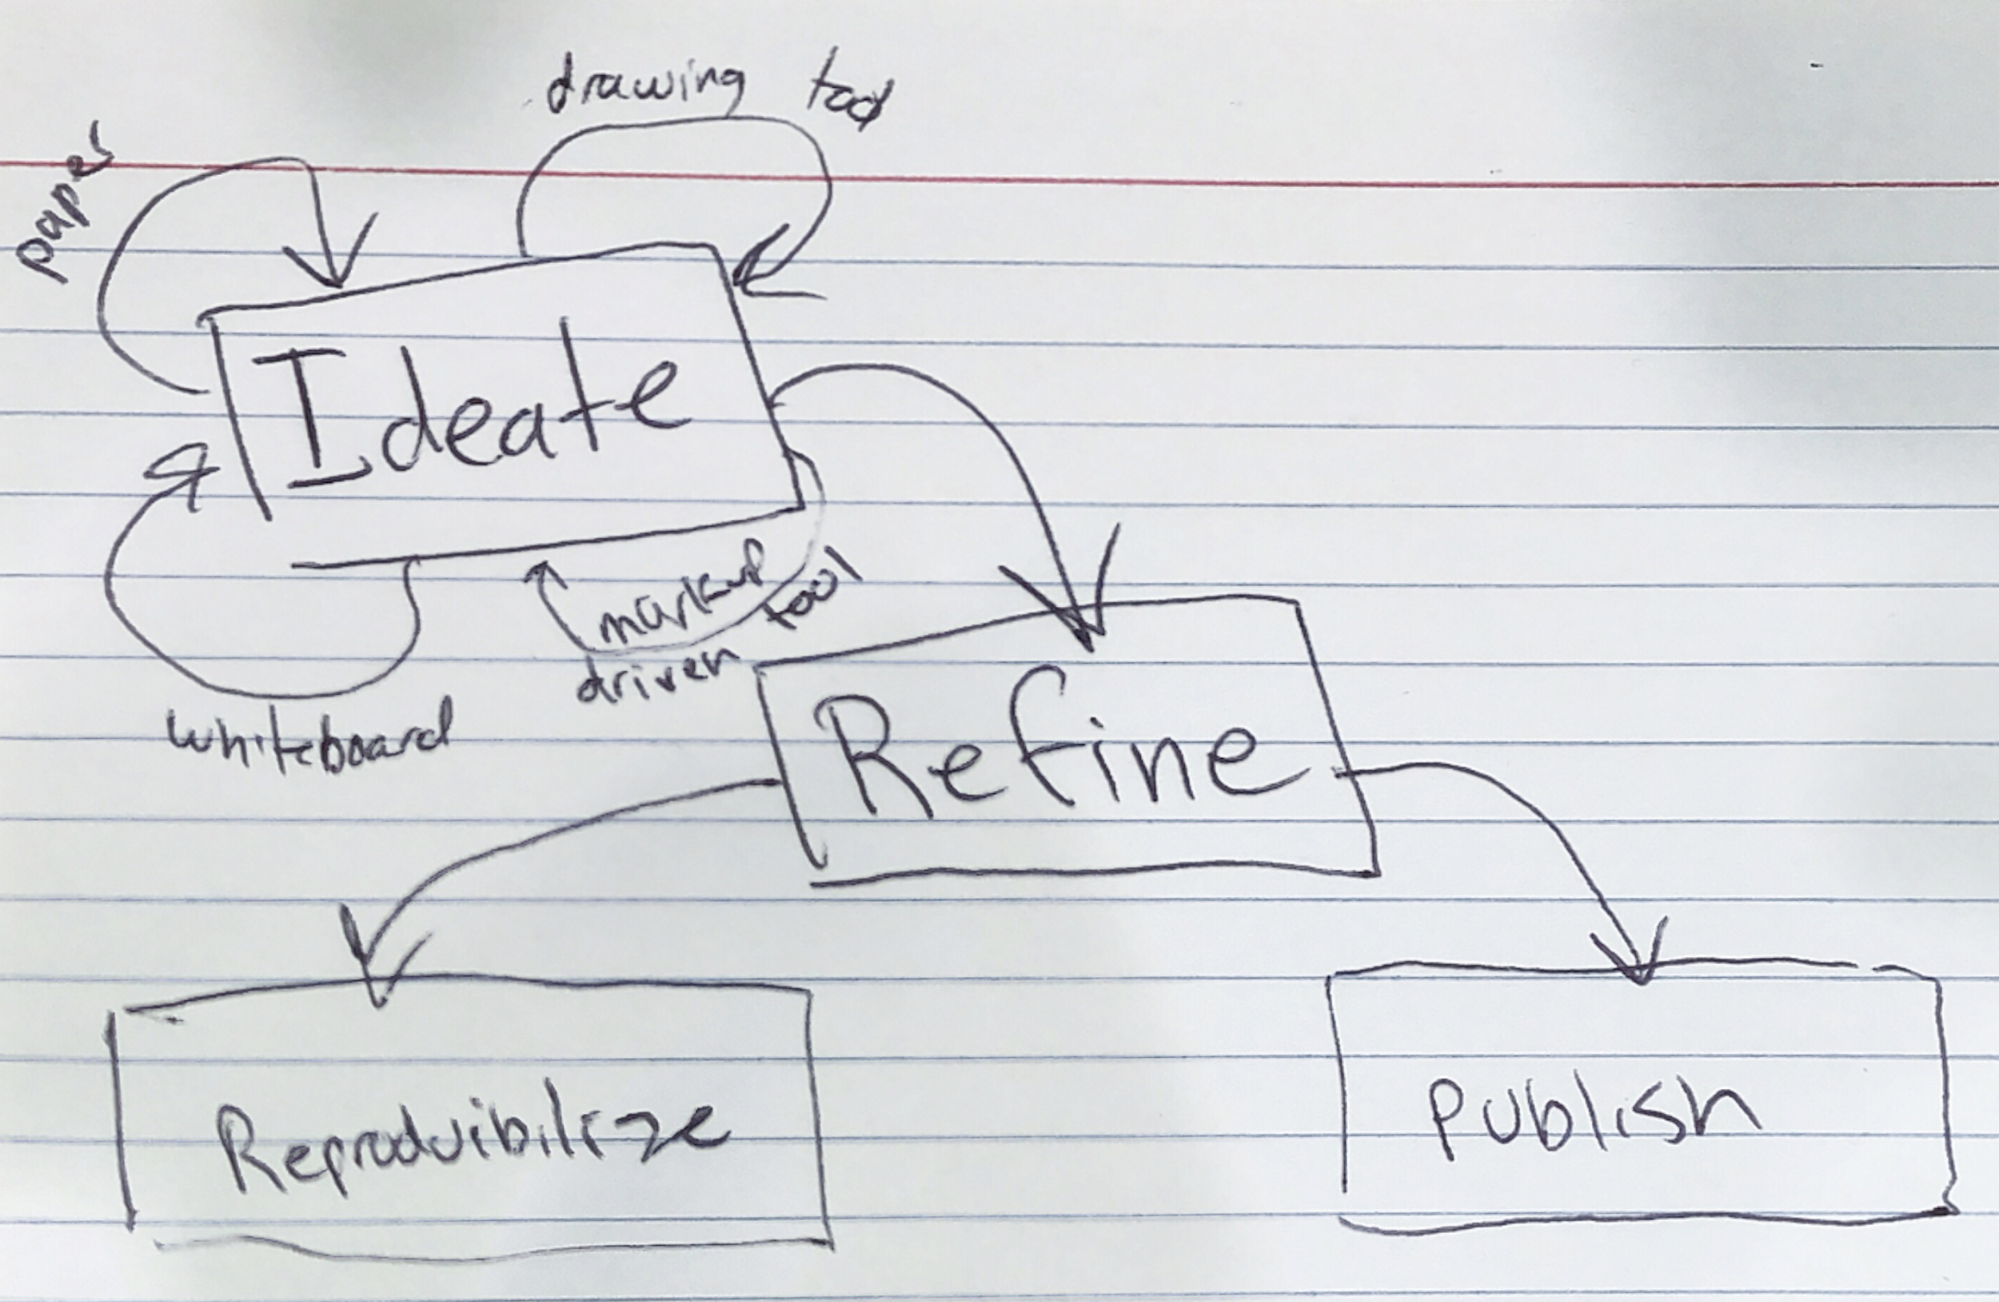 drawing tool
paper
Ideate
markup
driven tool
whiteboard
Refine
Reproduibilize
Publish